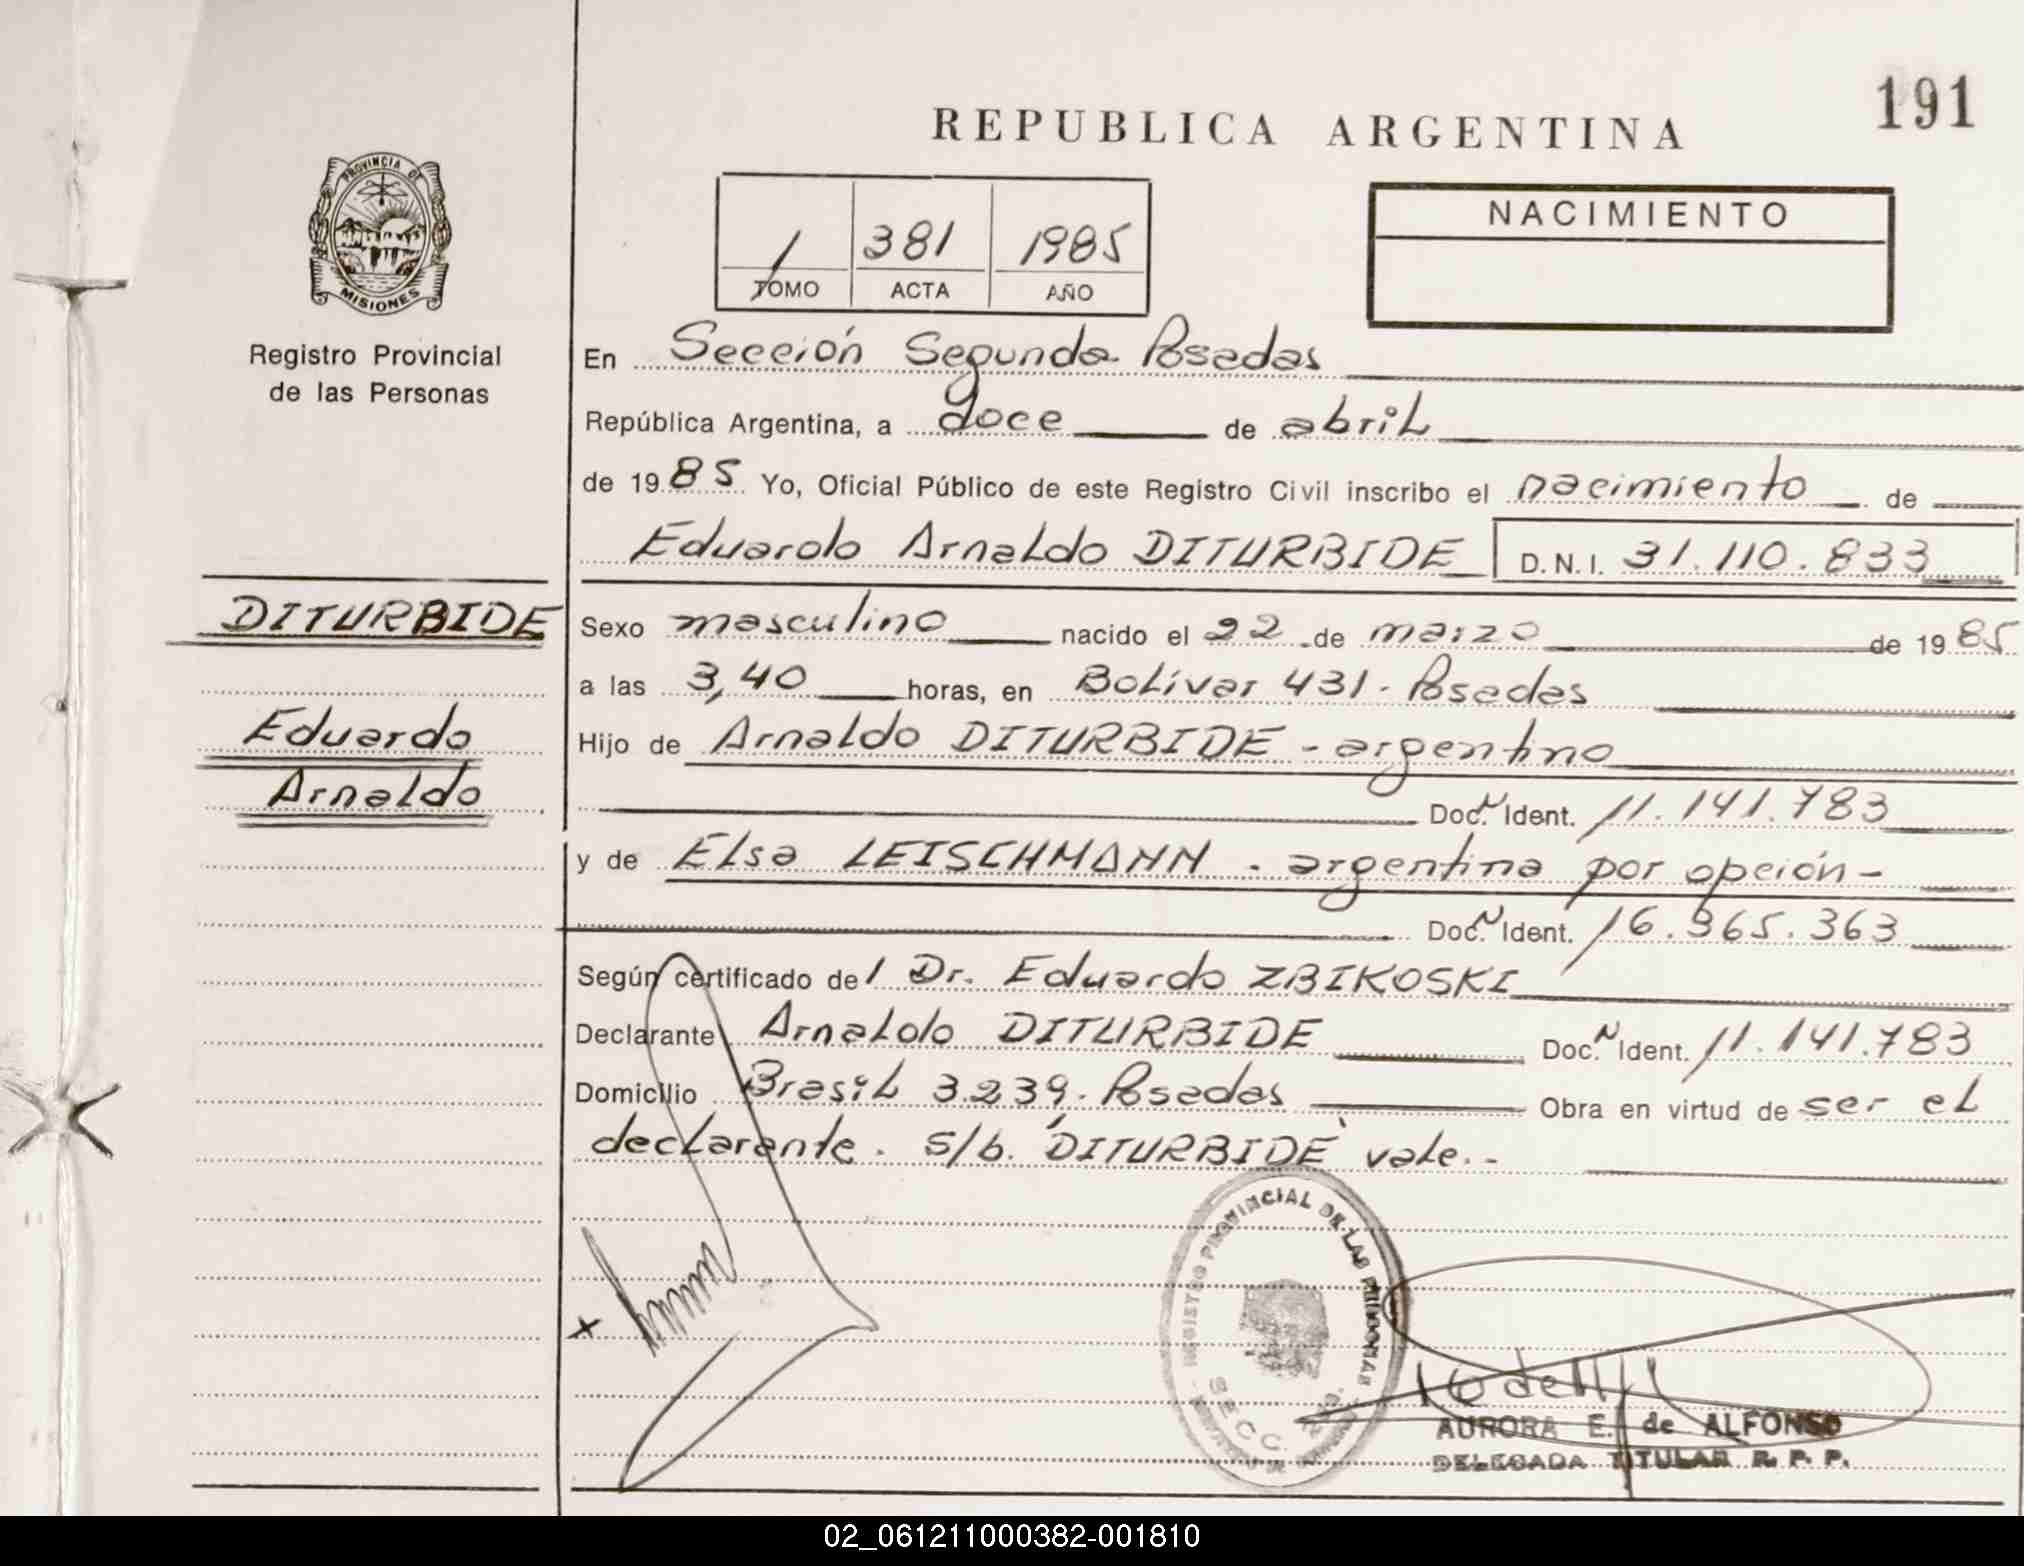 191
REPUBLICA ARGENTINA
PROVINCIA DE
MISIONES
Registro Provincial
de las Personas
1 381 1985
TOMO ACTA AÑO
NACIMIENTO
En Sección Segunda Posadas
República Argentina, a doce de abril
de 1985 Yo, Oficial Público de este Registro Civil inscribo el nacimiento de
Eduardo Arnaldo DITURBIDE D.N.I. 31.110.833
DITURBIDE
Eduardo
Arnaldo
Sexo masculino nacido el 22 de marzo de 1985
a las 3,40 horas, en Bolívar 431. Posadas
Hijo de Arnaldo DITURBIDE - argentino
Doc. N Ident. 11.141.783
y de Elsa LEISCHMANN - argentina por opción -
Doc. N Ident. 16.365.363
Según certificado del Dr. Eduardo ZBIKOSKI
Declarante Arnaldo DITURBIDE Doc. N Ident. 11.141.783
Domicilio Brasil 3239. Posadas Obra en virtud de ser el
declarante. s/b. "DITURBIDE" vale.-
x
REGISTRO PROVINCIAL DE LAS PERSONAS
SECC. 2da.
AURORA E. de ALFONSO
DELEGADA TITULAR R. P. P.
02_061211000382-001810